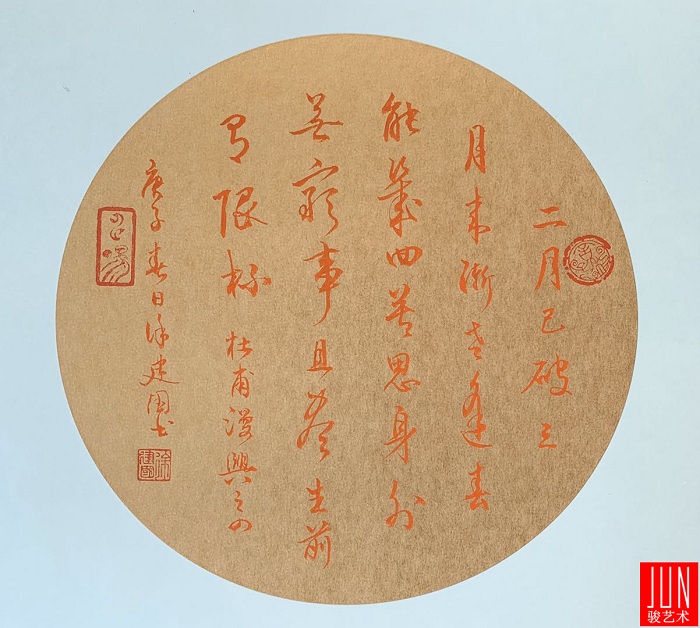 二月已破三
月来渐老逢春
能幾回莫思身外
無窮事且盡生前
有限杯 杜甫漫興之四
庚子春日徐建国书
徐建國
JUN
骏艺术